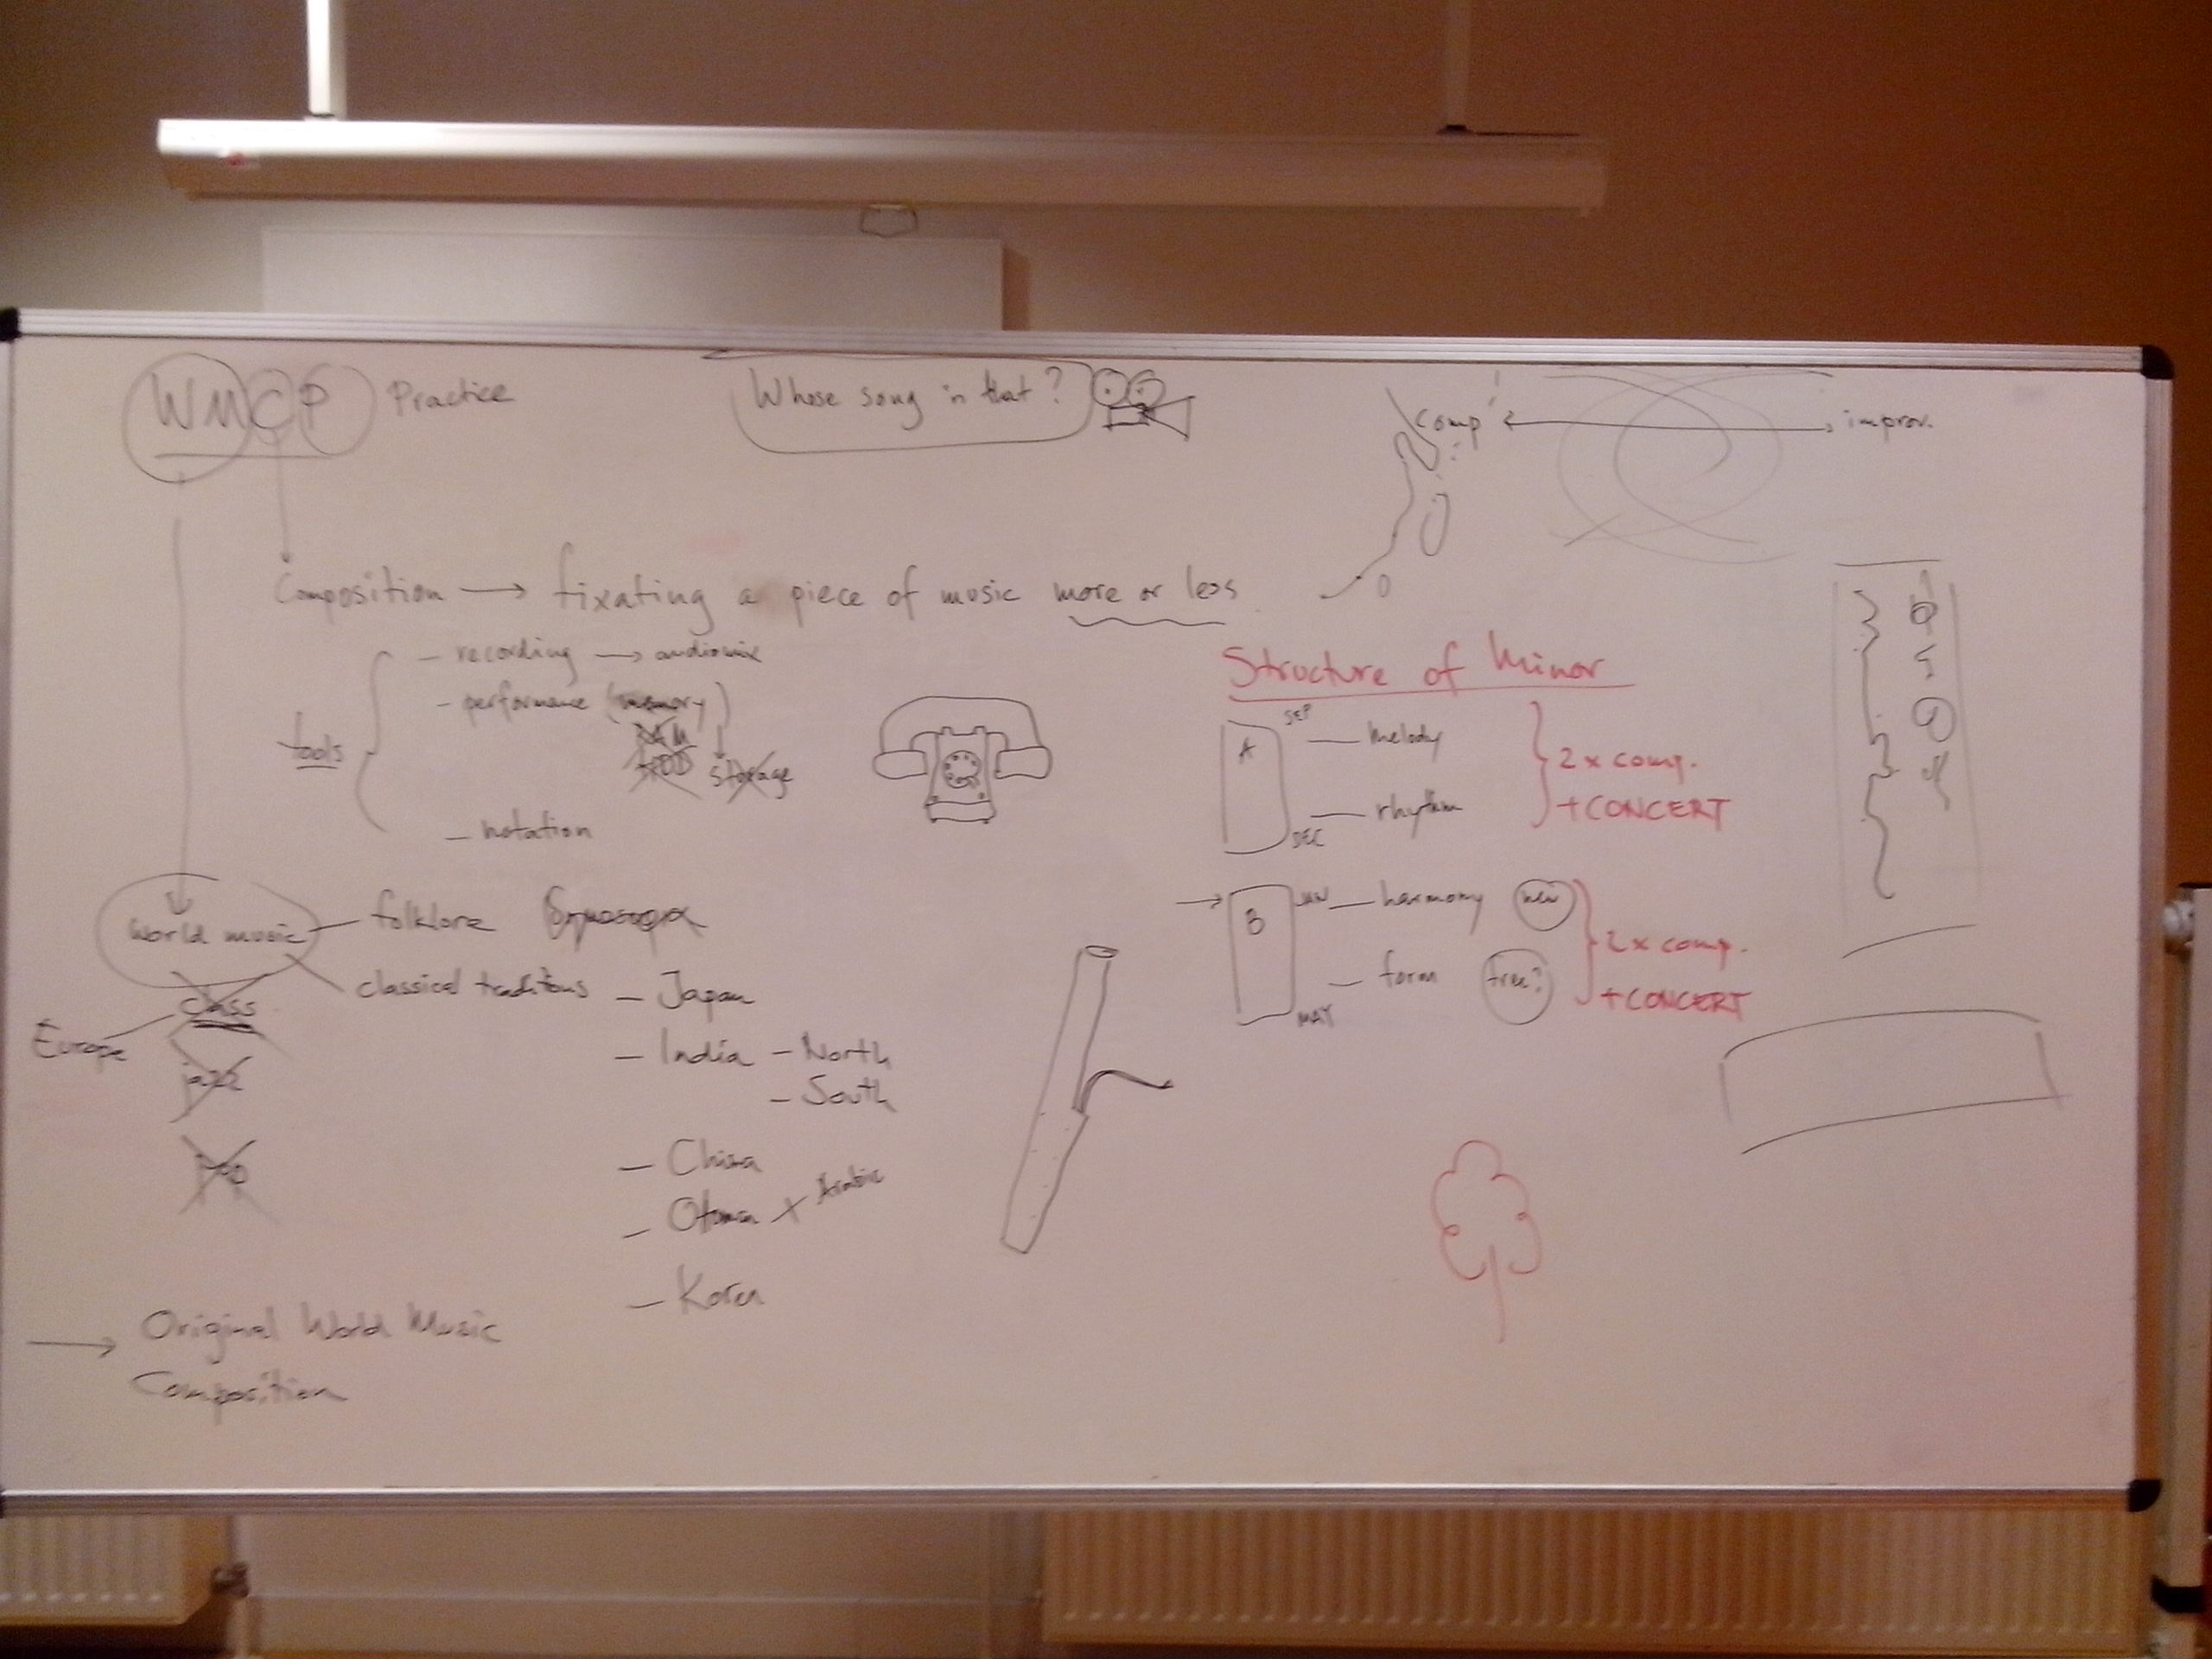 WMCP Practice
Whose song in that?
comp improv.
Composition → fixating a piece of music more or less
tools
- recording → audiomix
- performance (memory)
RAM
HDD storage
- notation
World music
- folklore
classical traditions
- Japan
- India - North
- South
- China
- Otoman + Arabic
- Korea
class
Europe
jazz
pop
→ Original World Music
Composition
Structure of Minor
A
SEP
DEC
- melody
- rhythm
2x comp.
+ CONCERT
→ B
JAN
MAY
- harmony new
- form free?
2x comp.
+ CONCERT